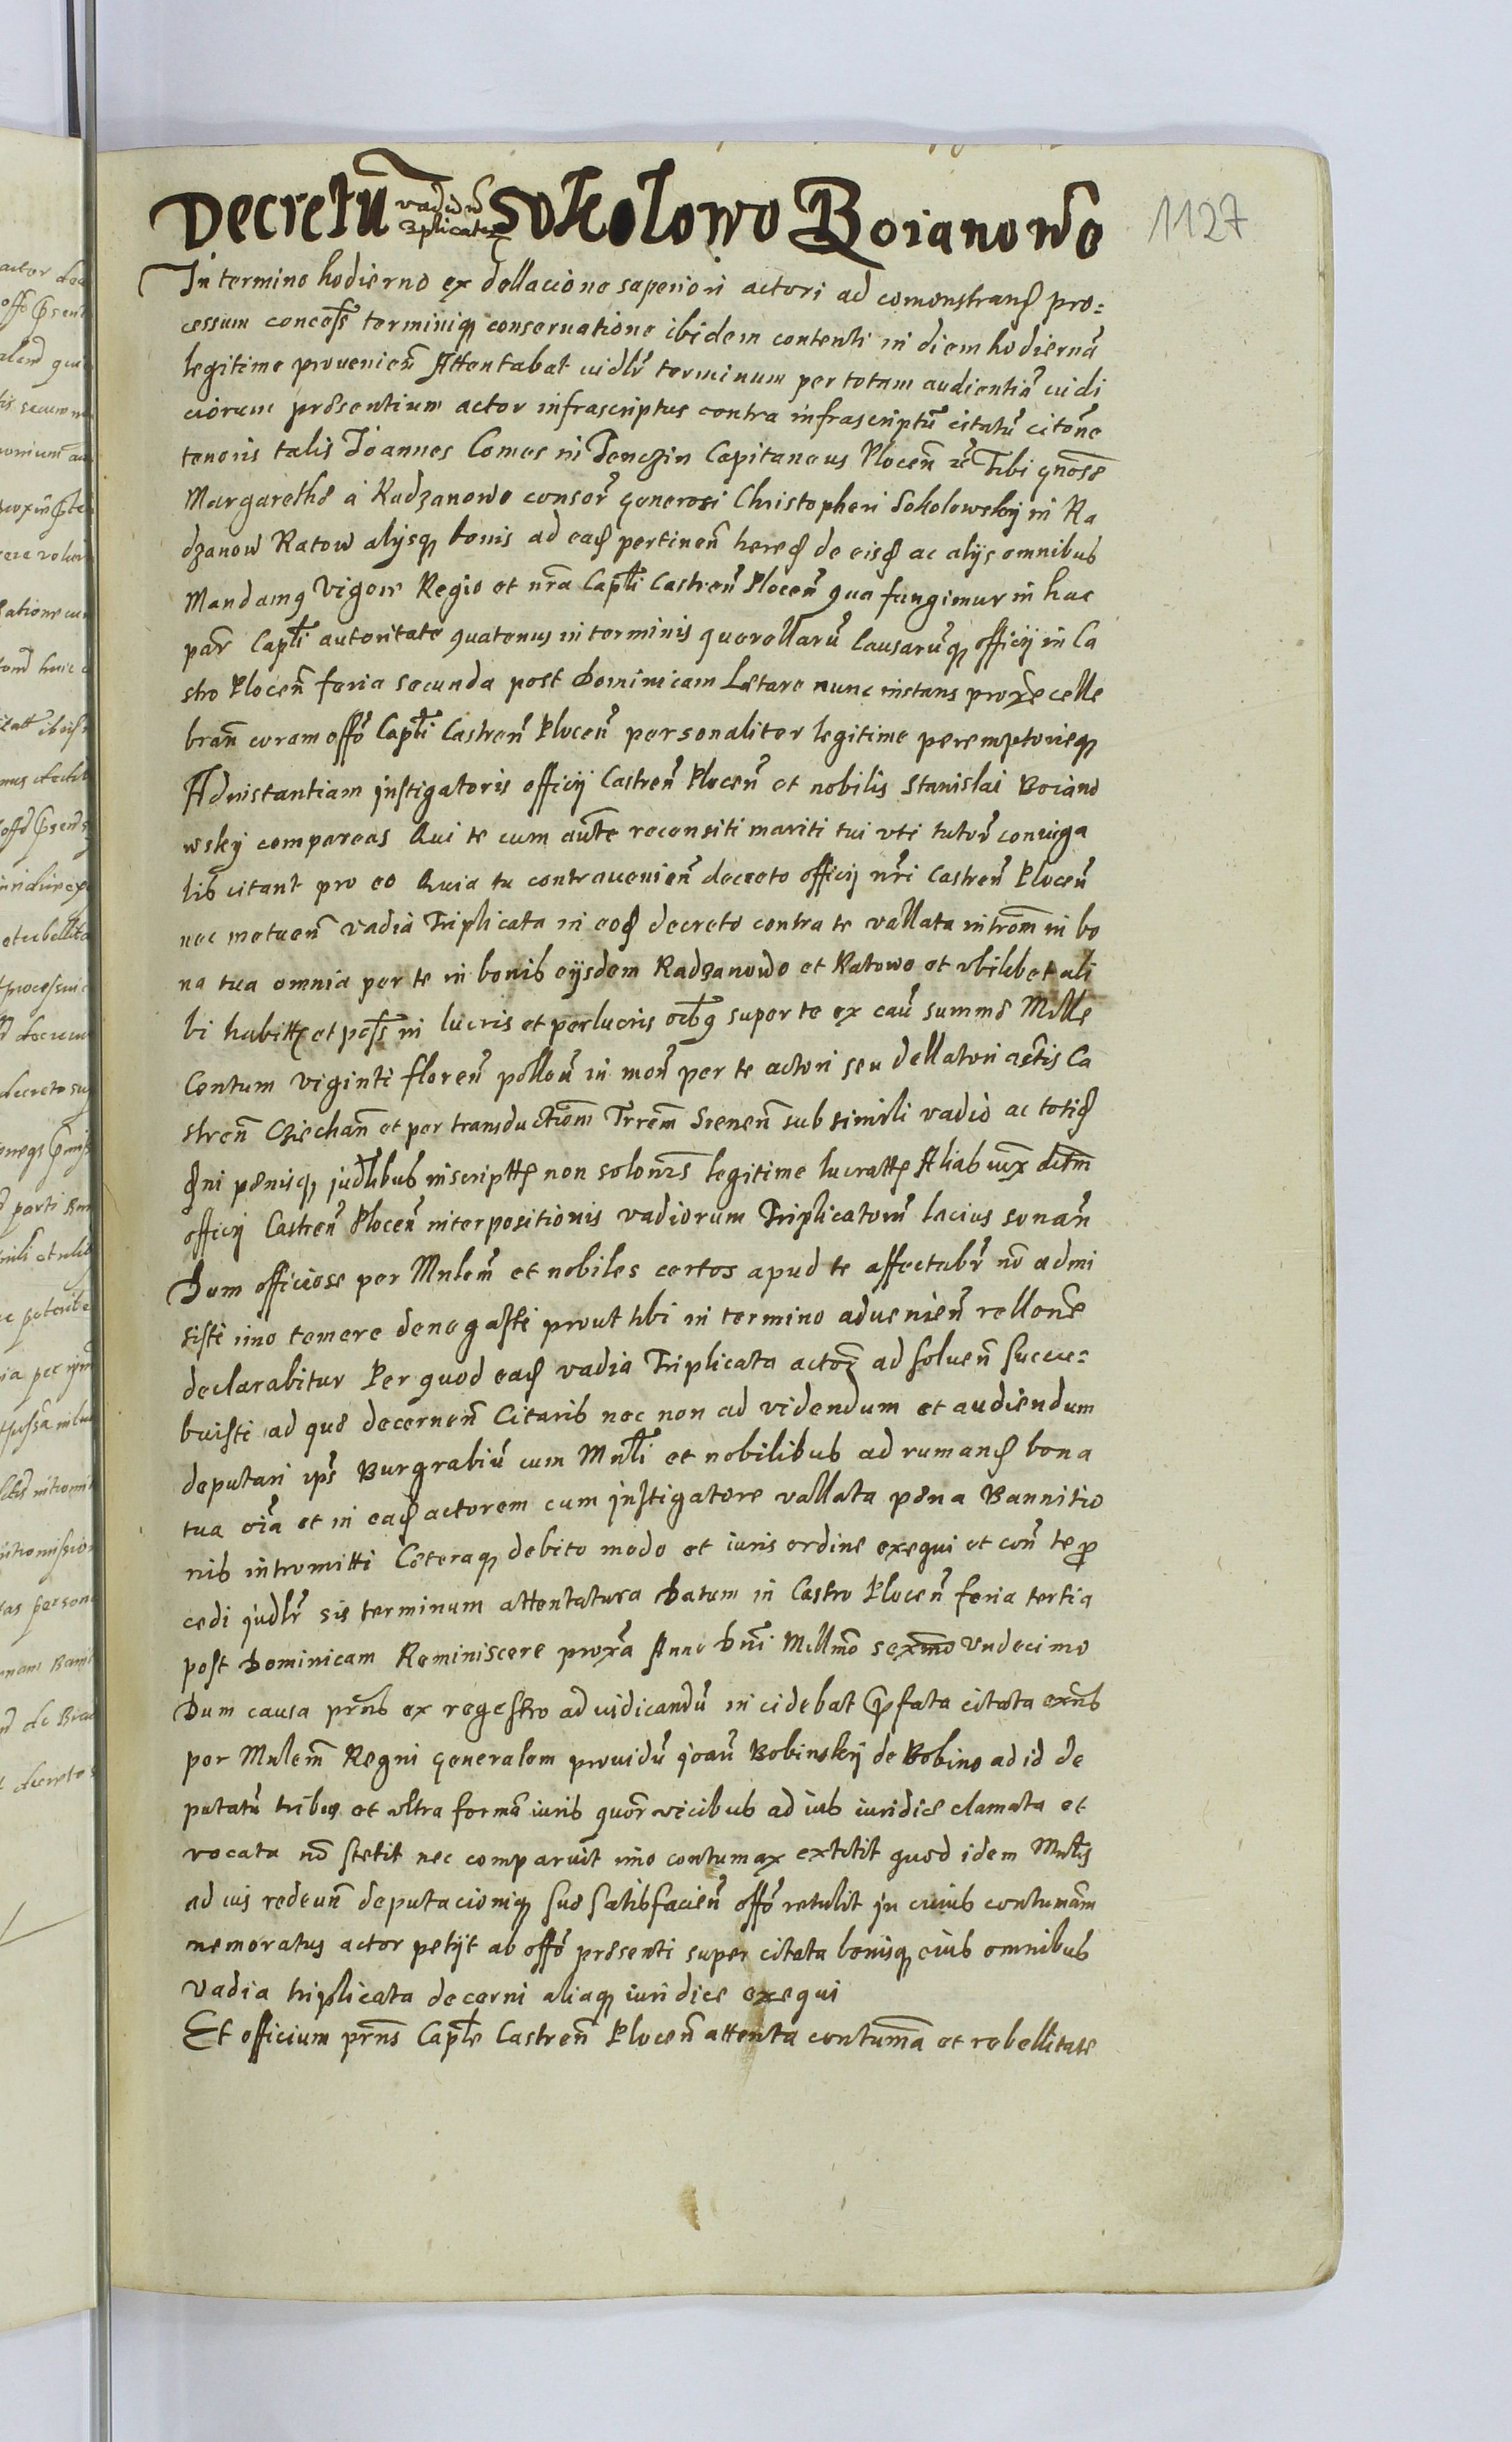 Decretū vadiorū 3plicatorū Sokolowo Boianowo
1127
In termino hodierno ex dellacione saperiori actori ad comonstrand pro=
cessum concess terminiq conseruatione ibidem contenti in diem hodiernā
legitime prouenien Attentabat iudlr terminum per totam audientiā iudi
ciorum praesentium actor infrascriptus contra infrascriptū citatū citōne
tenoris talis Joannes Comes in Tenczin Capitaneus Plocen etc Tibi gnose
Margarethae á Radzanowo consor generosi Christopheri Sokolowskij in Ra
dzanow Ratow alijsq bonis ad ead pertinen hered de eisd ac alijs omnibus
Mandamq Vigore Regio et nra Captli Castren Plocen qua fungimur in hac
par Captli autoritate quatenus in terminis querellarū Causarūq officij in Ca
stro Plocen feria secunda post Dominicam Laetare nunc instans proxe celle
bran coram offo Captli Castren Plocen personaliter legitime peremptorieq
Ad instantiam instigatoris officij Castren Plocen et nobilis Stanislai Boiano
wskij compareas Qui te cum aūte recensiti mariti tui vti tutor coniuga
lis citant pro eo Quia tu contrauenien decreto officij nri Castren Plocen
nec metuen vadia Triplicata in eod decreto contra te vallata introm in bo
na tua omnia per te in bonis eijsdem Radzanowo et Ratowo et vbilibet ali
bi habitt et poss in lucris et perlucris octbq super te ex cau summae Mille
Centum viginti floren pollou in mon per te actori seu dellatori actis Ca
stren Cziechan et per transductiom Trrem Srenen sub simili vadio ac totid
dni paenisq judlibus inscriptt non soloms legitime lucratt Alias iux dctm
officij Castren Plocen interpositionis vadiorum Triplicatorū lacius sonān
Dum officiose per Mnlem et nobiles certos apud te affectabr nō admi
sisti imo temere denegasti prout tibi in termino aduenien rellone
declarabitur Per quod ead vadia Triplicata actor ad soluen succu=
buisti ad quae decernen Citaris nec non ad videndum et audiendum
deputari ips Burgrabiū cum Mnli et nobilibus ad rumand bona
tua oīa et in ead actorem cum instigatore vallata paena Bannitio
nis intromitti Caeteraq debito modo et iuris ordine exequi et con te p
cedi judlr sis terminum attentatura Datum in Castro Plocen feria tertia
post Dominicam Reminiscere proxa Anno Dni Millmo sexmo Vndecimo
Dum causa prns ex regestro ad iudicandū incidebat pfata citata exns
per Mnlem Regni generalem prouidū joan Bobinskij de Bobino ad id de
putatū tribus et vltra formā iuris quor vicibus ad ius iuridice clamata et
vocata nō stetit nec comparuit imo contumax extitit quod idem Mnlis
ad ius redeun deputacioniq suae satisfacien offo retulit in cuius contumam
memoratus actor petijt ab offo praesenti super citata bonisq eius omnibus
Vadia triplicata decerni aliaq iuridice exequi
Et officium prns Captle Castren Plocen attenta contumā et rebellitate